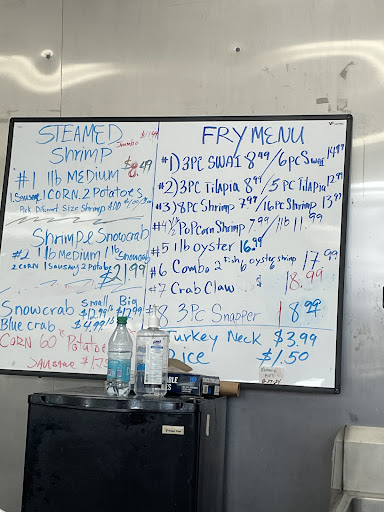 STEAMED
Shrimp
Jumbo
#1 1lb MEDIUM 8.49
1.Sausag 1 CORN.2 Potatoes
Shrimp & Snowcrab
#2 1lb Medium 1lb Snowcrab
2 corn 1 sausag 2 Potatoe
$21.99
Snowcrab Small Big
$12.99lb $17.99
Blue crab $4.99lb
CORN 60¢ Potatoe
Sausage
FRY MENU
#1)3PC SWAI 8.99/6pc Swai 14.99
#2)3PC Tilapia 8.99/5PC Tilapia 12.99
#3)8PC Shrimp 7.99/16PC Shrimp 13.99
#4 1/2 PoPcorn Shrimp 7.99/1lb 11.99
#5 1lb oyster 16.99
#6 Combo 2 Fish 6 oyster 6 shrimp 17.99
#7 Crab Claw $ 8.99
#8 3PC Snapper 8.99
Turkey Neck $3.99
Rice $1.50